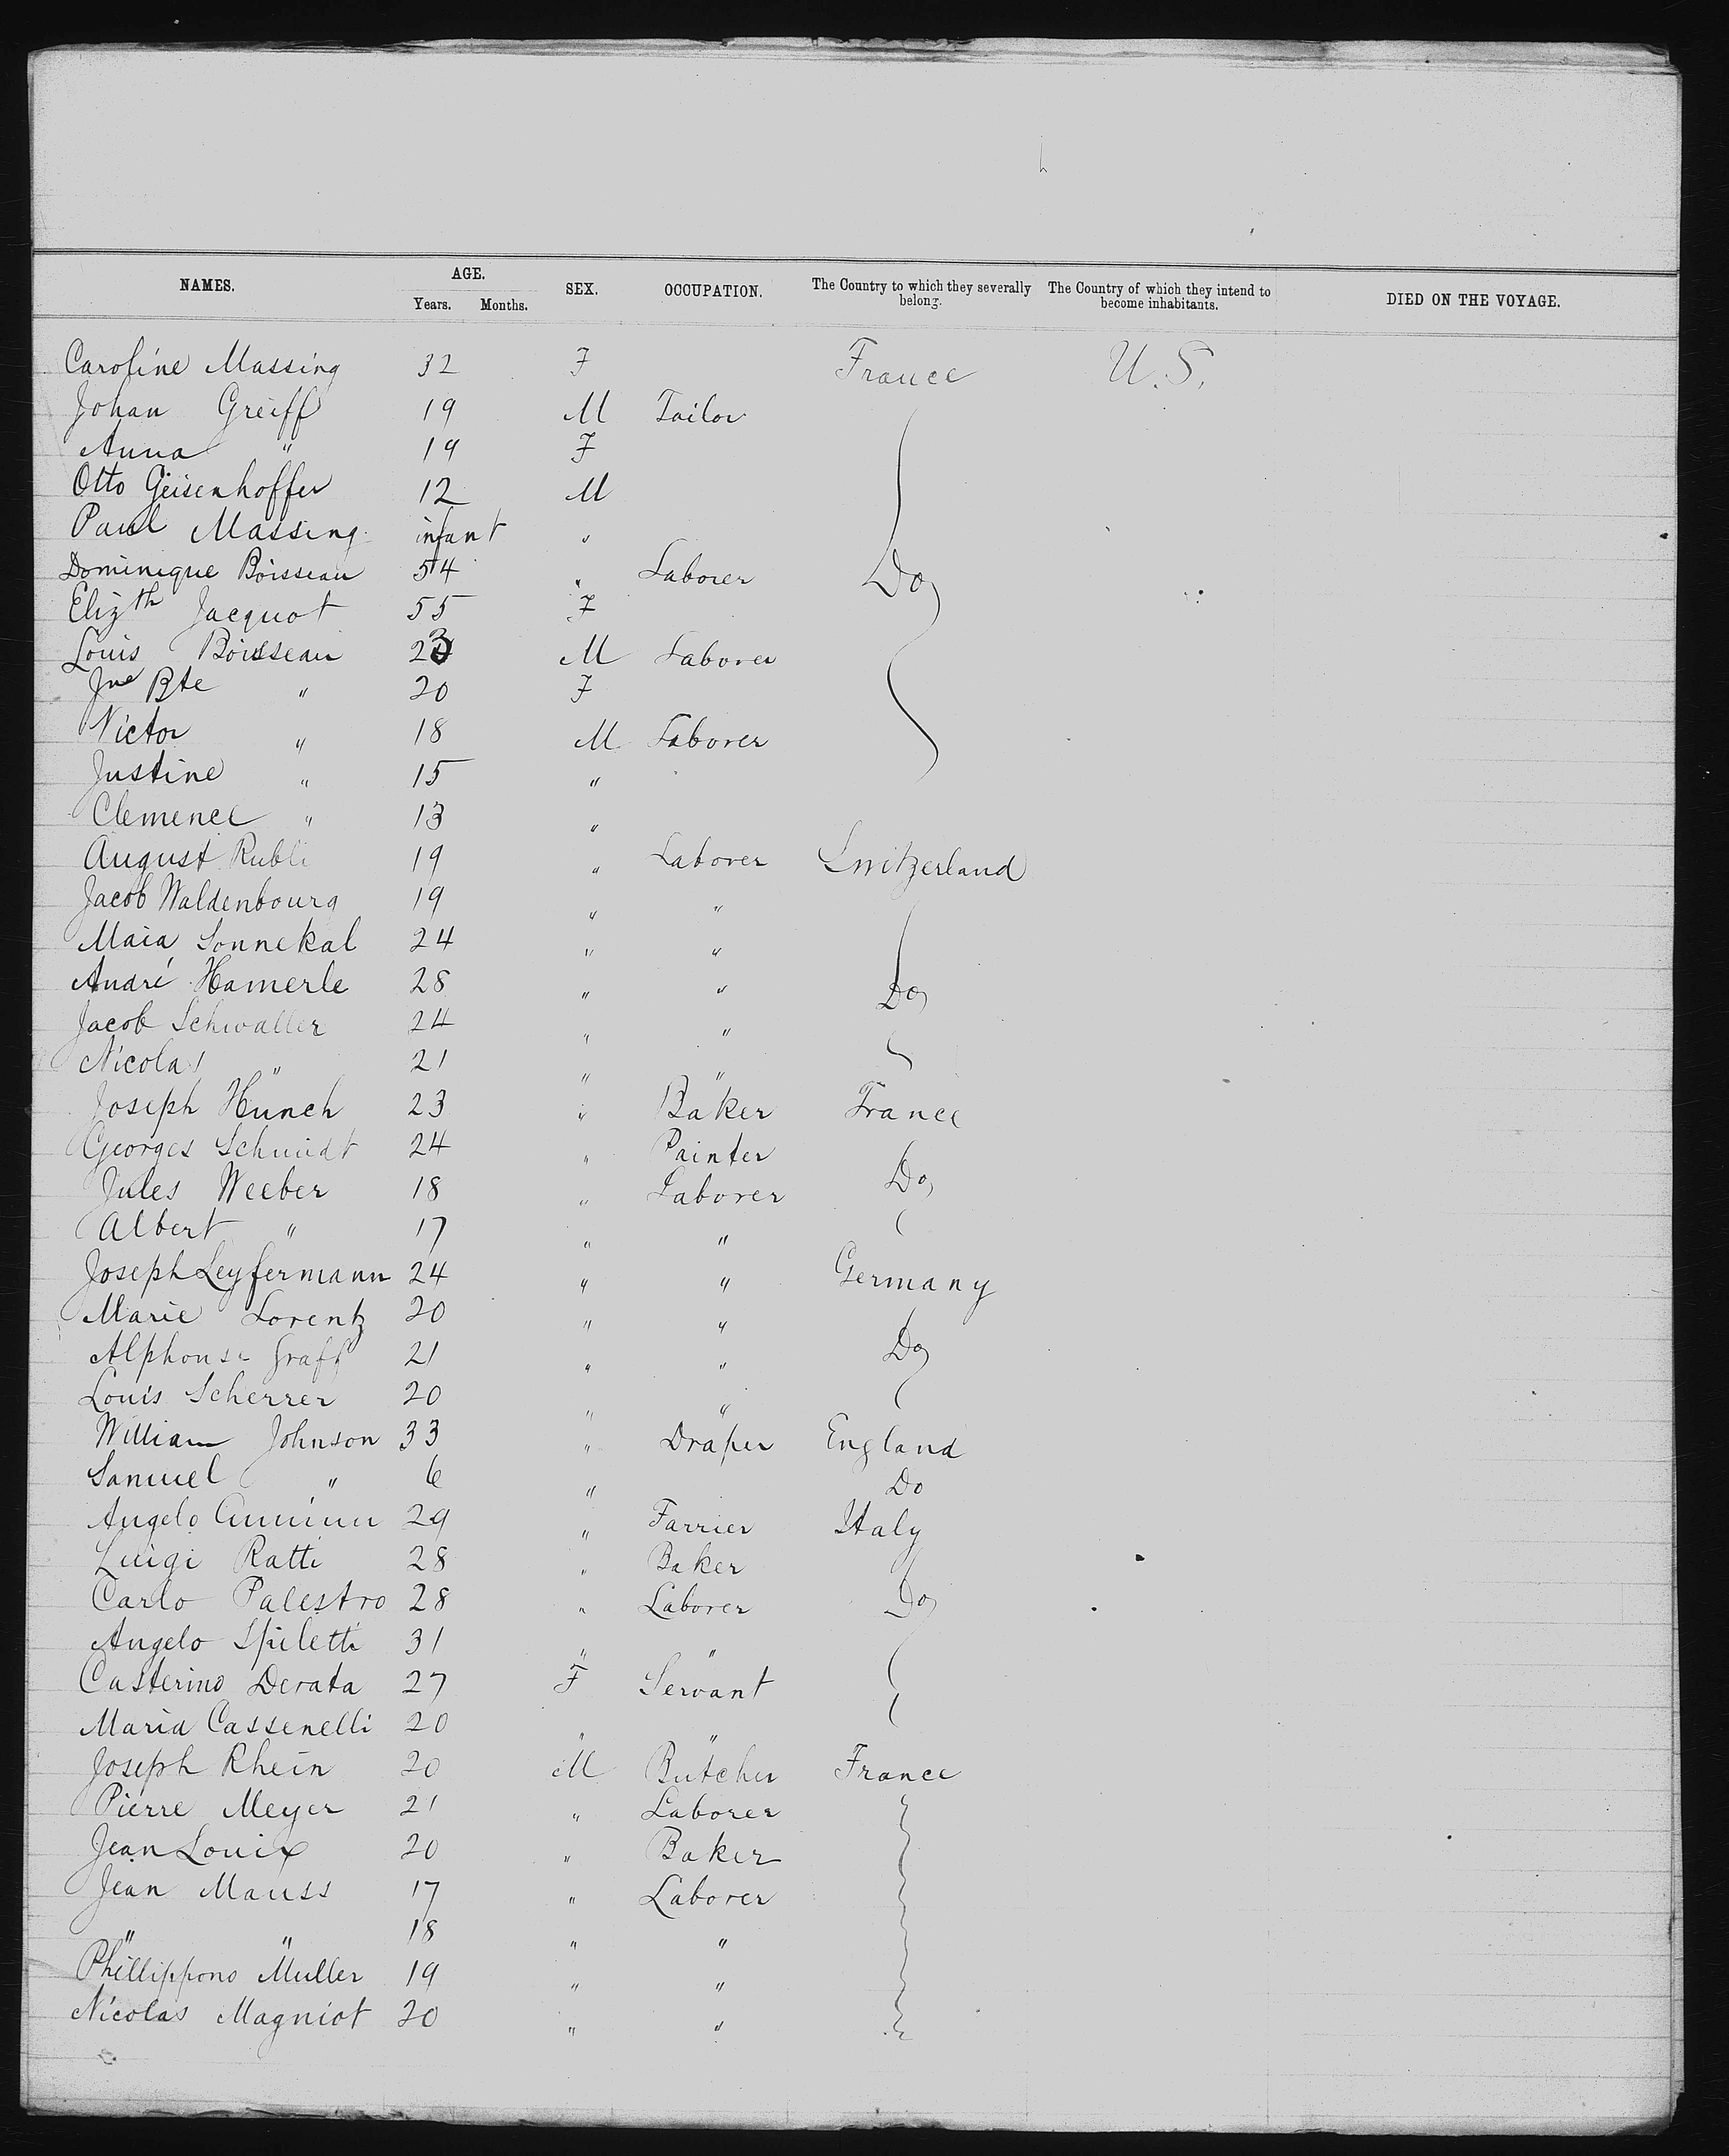 NAMES. AGE. Years. Months. SEX. OCCUPATION. The Country to which they severally belong. The Country of which they intend to become inhabitants. DIED ON THE VOYAGE.
Caroline Massing 32 F France U.S.
Johan Greiff 19 M Tailor
Anna " 19 F
Otto Geisenhoffer 12 M
Paul Massing infant "
Dominique Boisseau 54 " Laborer Do
Elizth Jacquot 55 F
Louis Boisseau 23 M Laborer
Jne Bte " 20 F
Victor " 18 M Laborer
Justine " 15 "
Clemence " 13 "
August Rubli 19 " Laborer Switzerland
Jacob Waldenbourg 19 " "
Maia Sonnekal 24 " "
André Hamerle 28 " " Do
Jacob Schwaller 24 " "
Nicolas " 21 " "
Joseph Hunch 23 " Baker France
Georges Schmidt 24 " Painter
Jules Weeber 18 " Laborer Do
Albert " 17 " "
Joseph Leyfermann 24 " " Germany
Marie Lorentz 20 " "
Alphonse Graff 21 " " Do
Louis Scherrer 20 " "
William Johnson 33 " Draper England
Samuel " 6 " Do
Angelo 29 " Farrier Italy
Luigi Ratti 28 " Baker
Carlo Palestro 28 " Laborer Do
Angelo Spiletti 31 " "
Casterino Derata 27 F Servant
Maria Cassenelli 20 " "
Joseph Rhein 20 M Butcher France
Pierre Meyer 21 " Laborer
Jean Louix 20 " Baker
Jean Mauss 17 " Laborer
" " 18 " "
Phillippono Muller 19 " "
Nicolas Magniot 20 " "